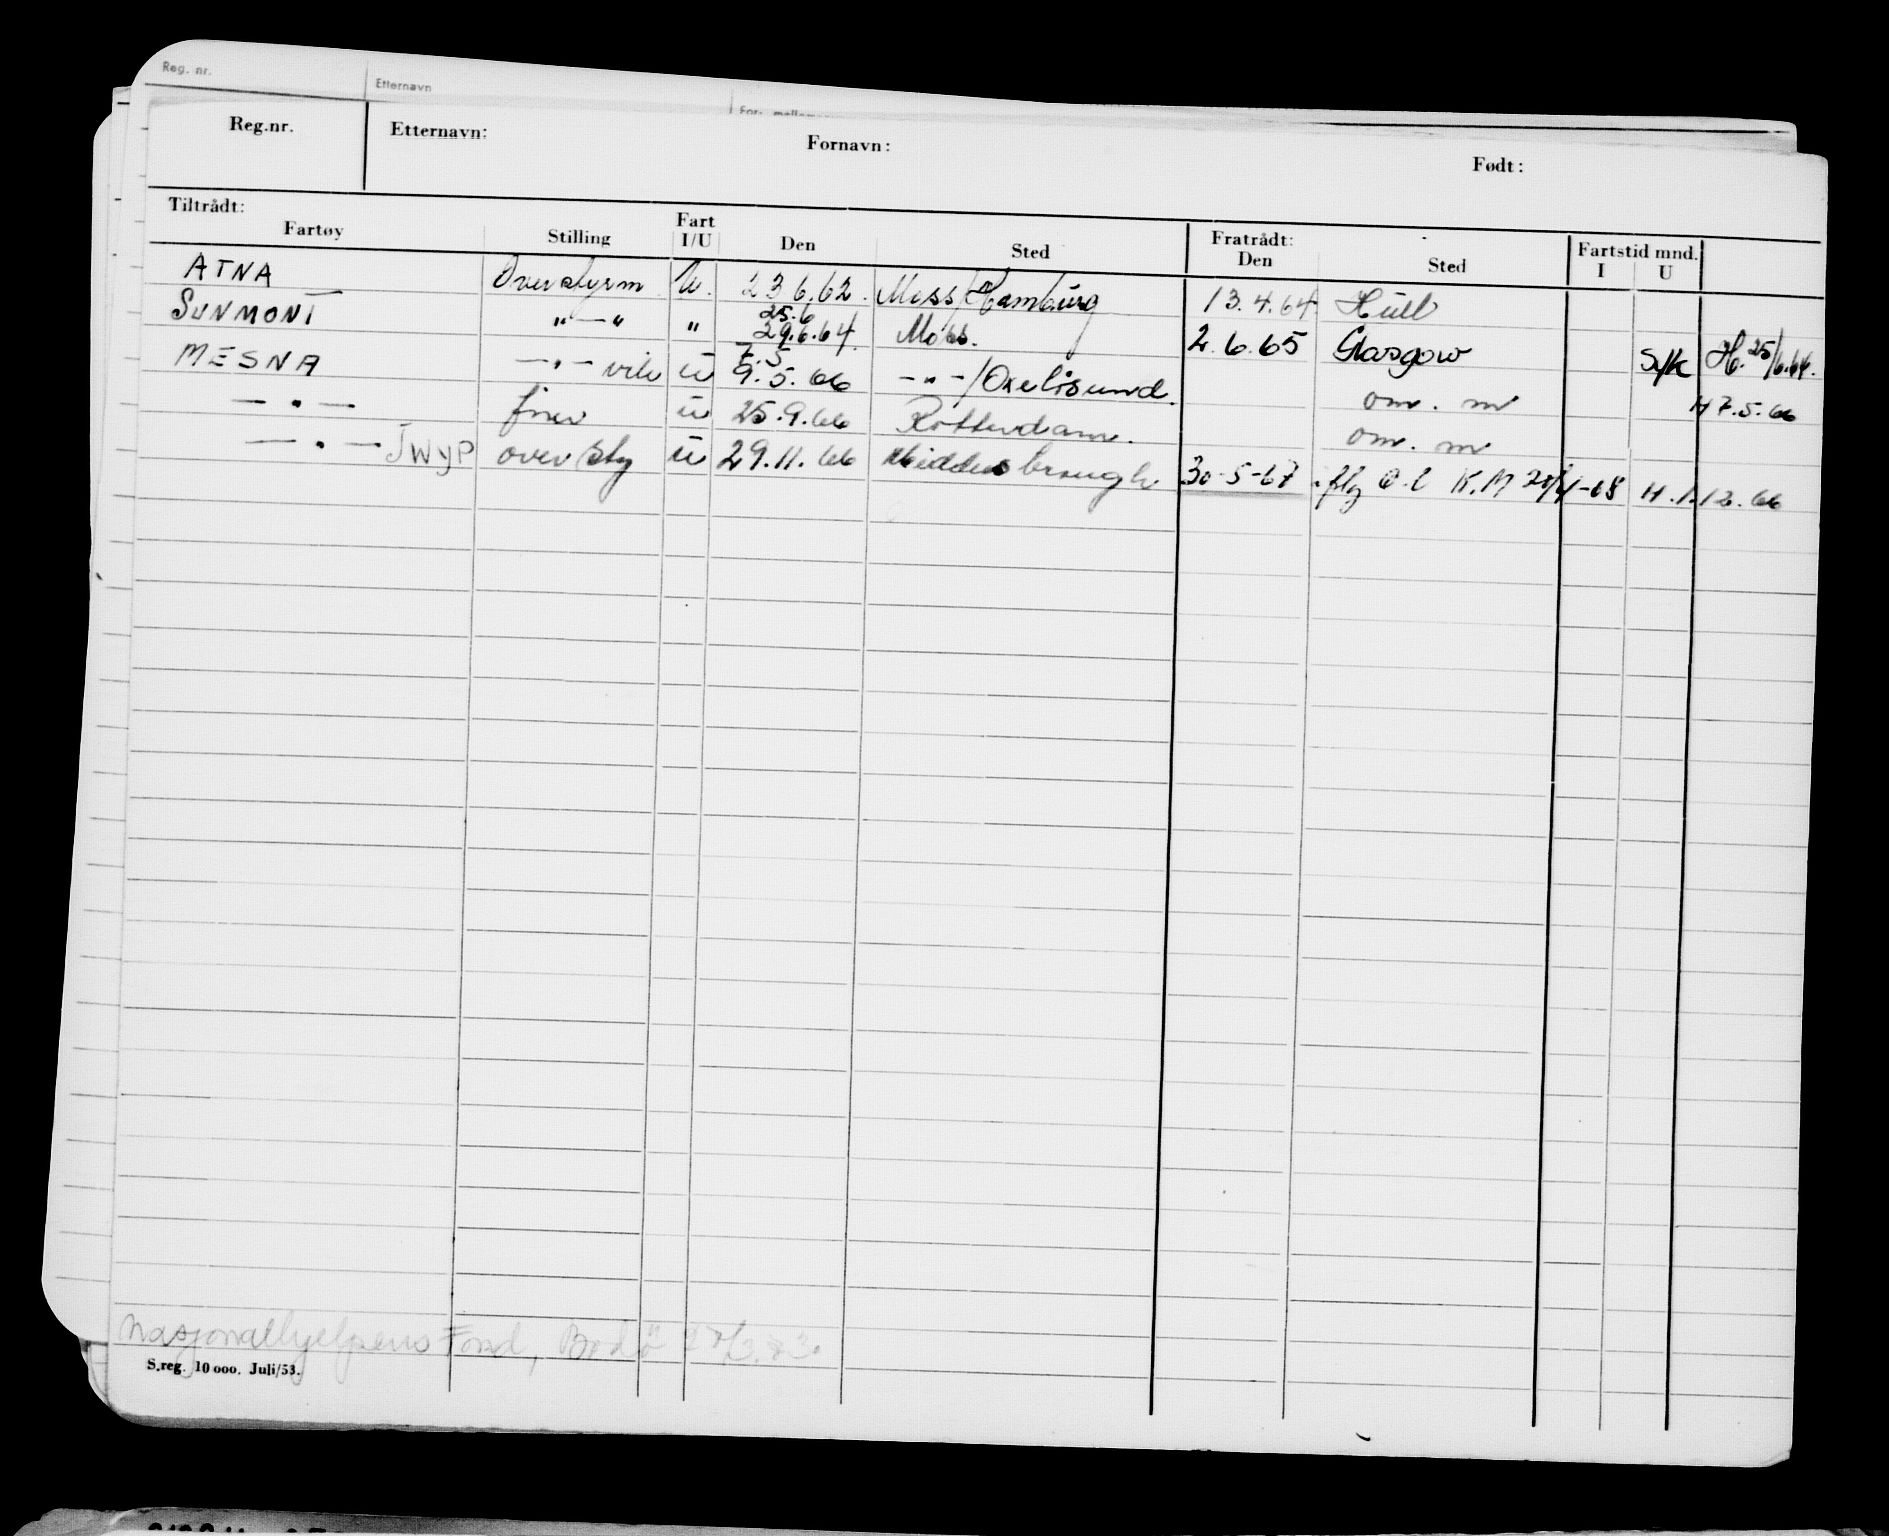 Reg. nr.
Etternavn
Reg.nr. Etternavn: Fornavn: Født:
Tiltrådt: Fratrådt: Fartstid mnd.
Fartøy Stilling Fart I/U Den Sted Den Sted I U
ATNA Overstyrm U. 23 6.62. Moss/Hamburg 13.4.64. Hull
25.6
SUNMONT "—" " 29.6.64. Moss. 2.6.65 Glasgow Syk H. 25/6.64.
7.5
MESNA —"— vik u 9.5.66 —"—/Oxelösund. om. m H 7.5.66
—"— u 25.9.66 Rotterdam. om. m
—"— JWYP oversty u 29.11.66 Middlesbrough 30-5-67 K.M H.1.12.66
Nasjonalhjelpens Fond, Bodö
S.reg. 10 000. Juli/53.